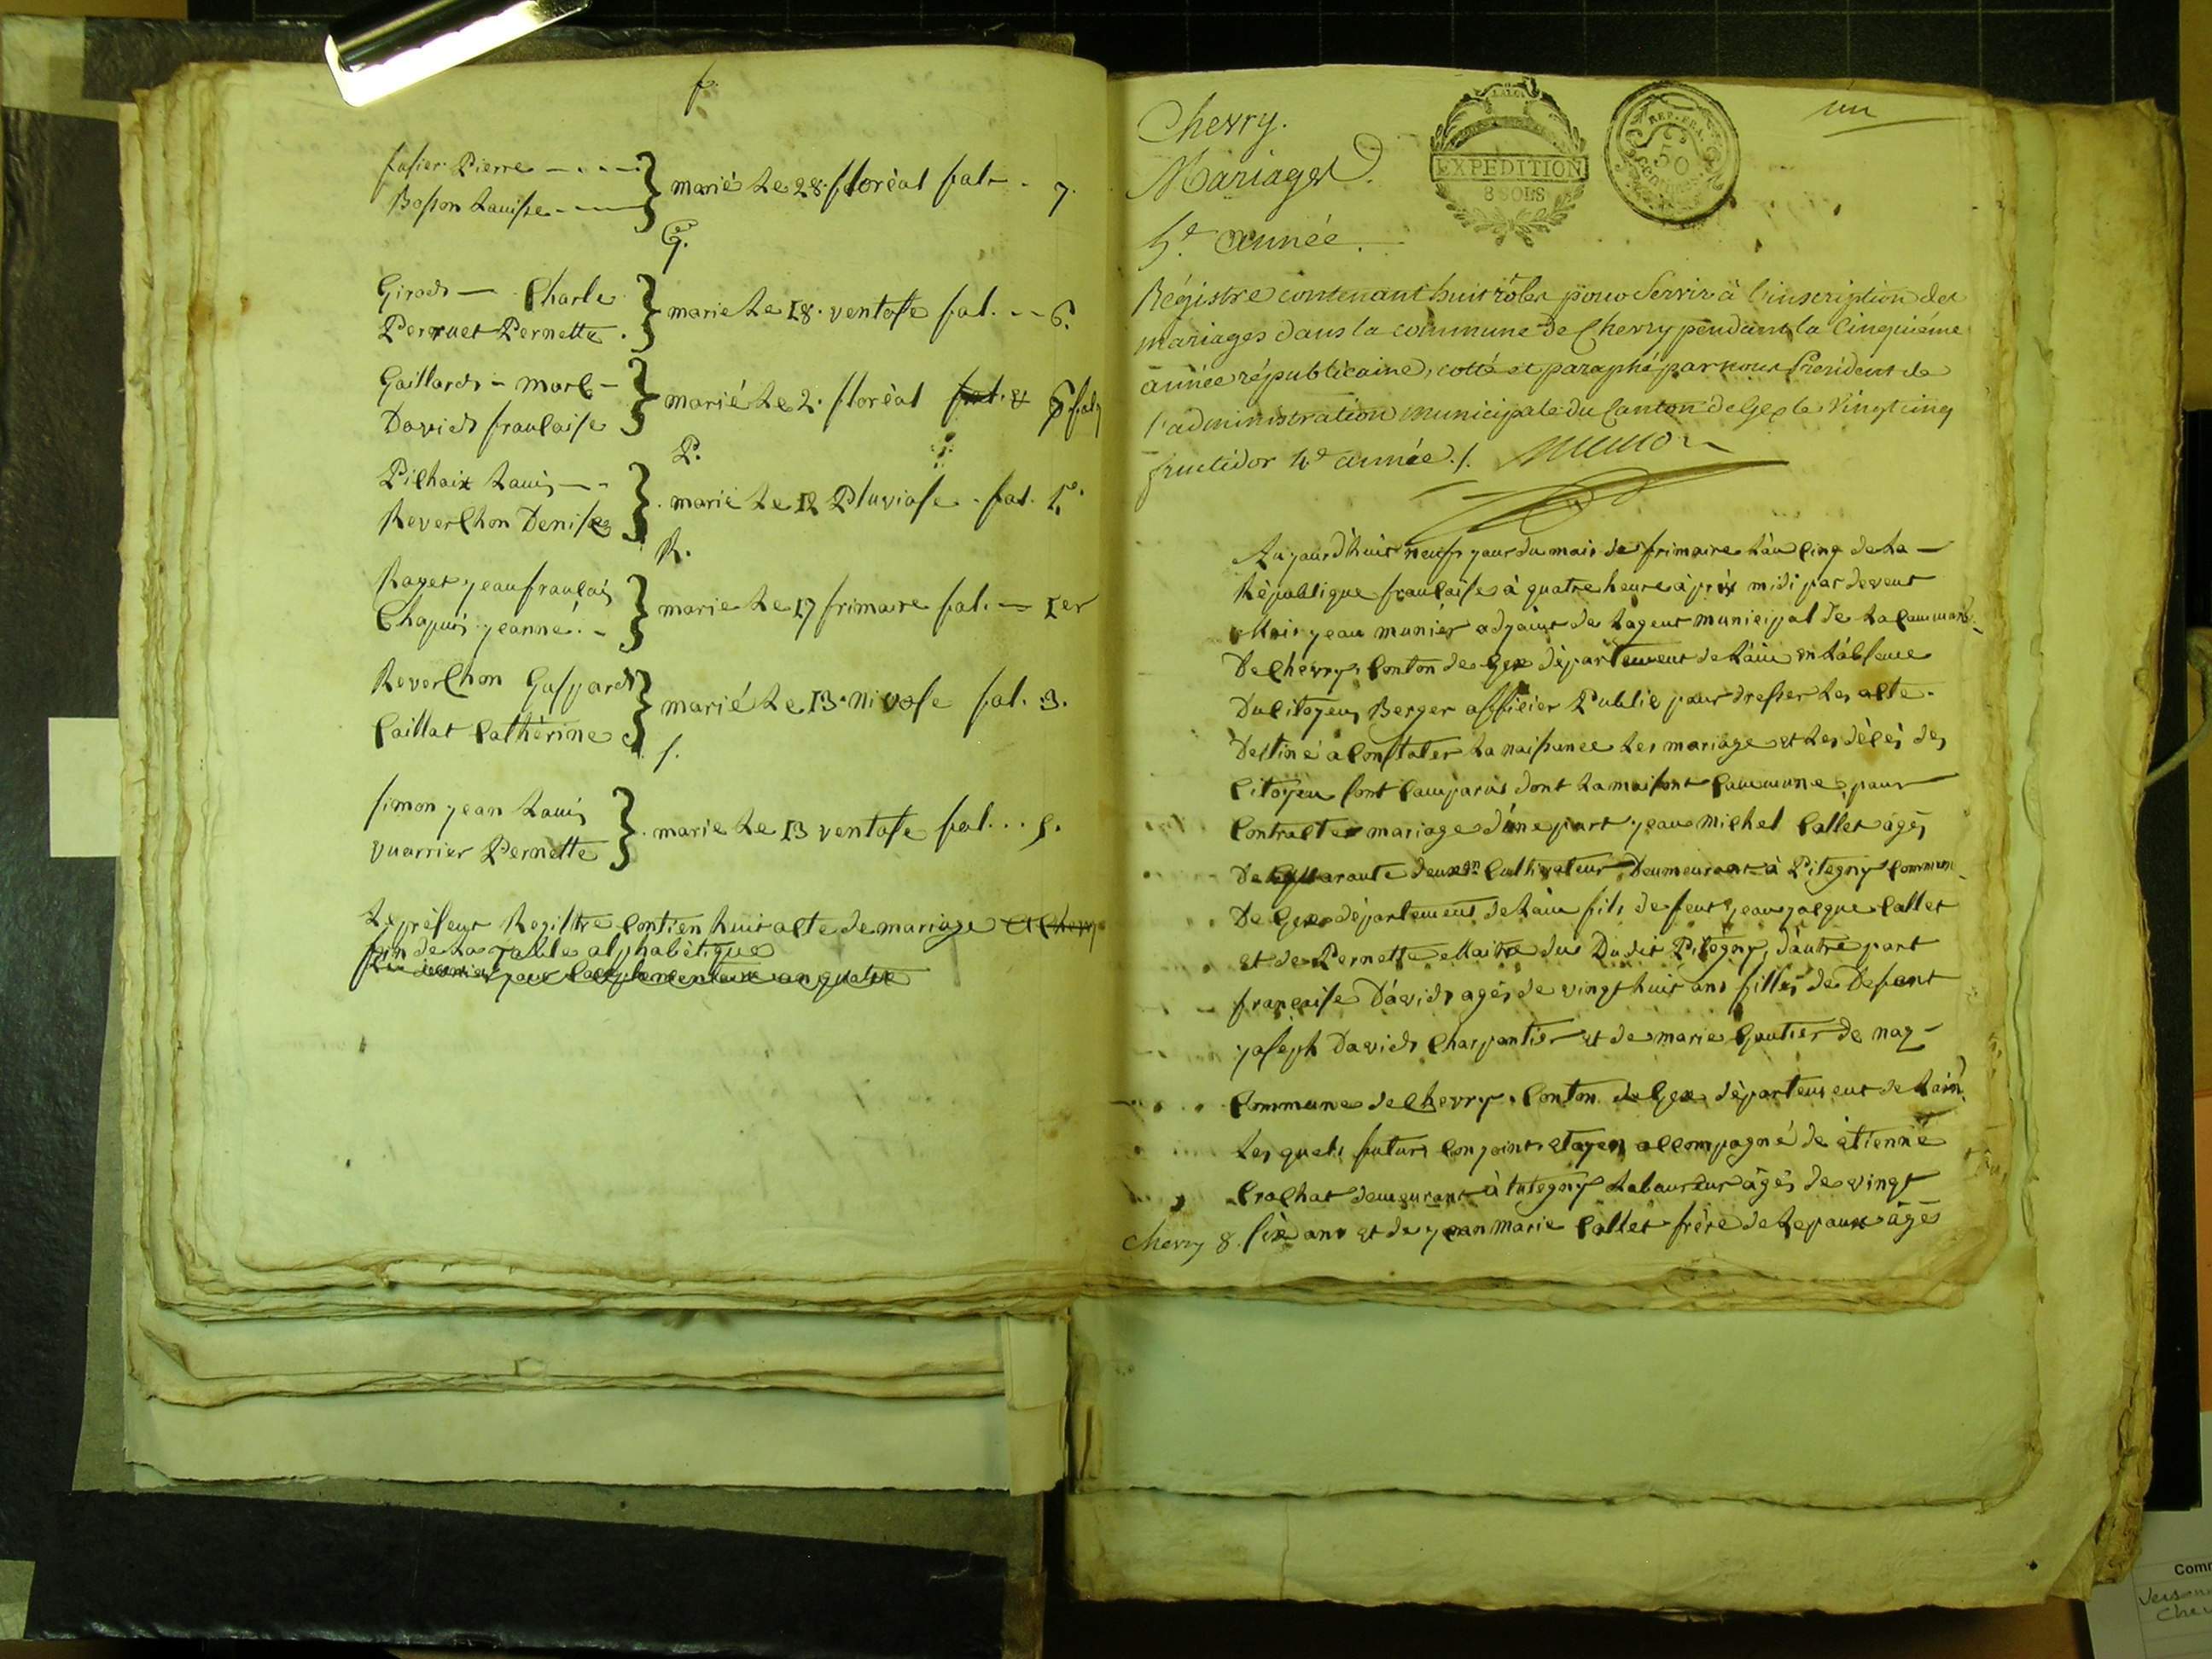 f.
fasier Pierre
Bosson Lauise
marié Le 28 floréal fal. 7.
G.
Girods Charle
Perruet Pernette
marie Le 18. ventose fal. 6.
Gaillards marc
Davids francaise
marié Le 2. floréal
P.
Pilhaix Lauis
Reverchon Denise
marié Le 12 Pluviose fal.
R.
Raget jean francais
Chapuis jeanne
marie Le 17 frimaire fal. 1er
Reverchon Gaspards
Caillat Cathèrine
marié Le 13 Nivose fal. 3.
S.
simon jean Lauis
vuarrier Pernette
marie Le 13 ventose fal. 5.
Le présent Registre Contien huit acte de mariage
fin de La Table alphabètique
un
Chevry.
Mariages
5.e année.
LA LOI
EXPEDITION
8 SOLS
REP. FRA.
50
CENTIMES
Régistre contenant huit rôles pour servir à l'inscription des
mariages dans la commune de Chevry pendant la Cinquiéme
année républicaine, cotté et paraphé par nous Président de
l'administration municipale du Canton de Gex le Vingt cinq
fructidor 4.e année./.
Aujourd'huis neufs jour du mois de frimaire L'an cinq de La
République francaise à quatre heure àprès midi par devent
Moi jean munier adjoint de Lagent municipal de La Commune
De Chevry, Conton de Gex dèpartement de L'ain en L'absence
Du Citoyen Berger officier Public pour dresser Les acte
Destiné à Constater La naissance Les mariage et Les décès des
Citoyen sont Comparus dont La maisont Commune, pour
Contracter mariage d'une part jean michel Callet àgés
De quarante deux an Cultivateur Deumeurant à Pitegny Commune
De Gex département de L'ain fils de feut jean jacque Callet
et de Pernette Maitre du Dudit Pitegny, d'autre part
francaise Davids agés de vingt huit ans filles de Defunt
joseph Davids Charpantier et de marie Gautier de naz
Commune de Chevry, Conton de Gex département de L'ain
Les quels futurs Conjoint accompagné de étienne
Crachat demeurant à Labaureur àgés de vingt
six ans et de jean marie Callet frère de Lepaux àgés
Chevry 8.
Comm
Chev